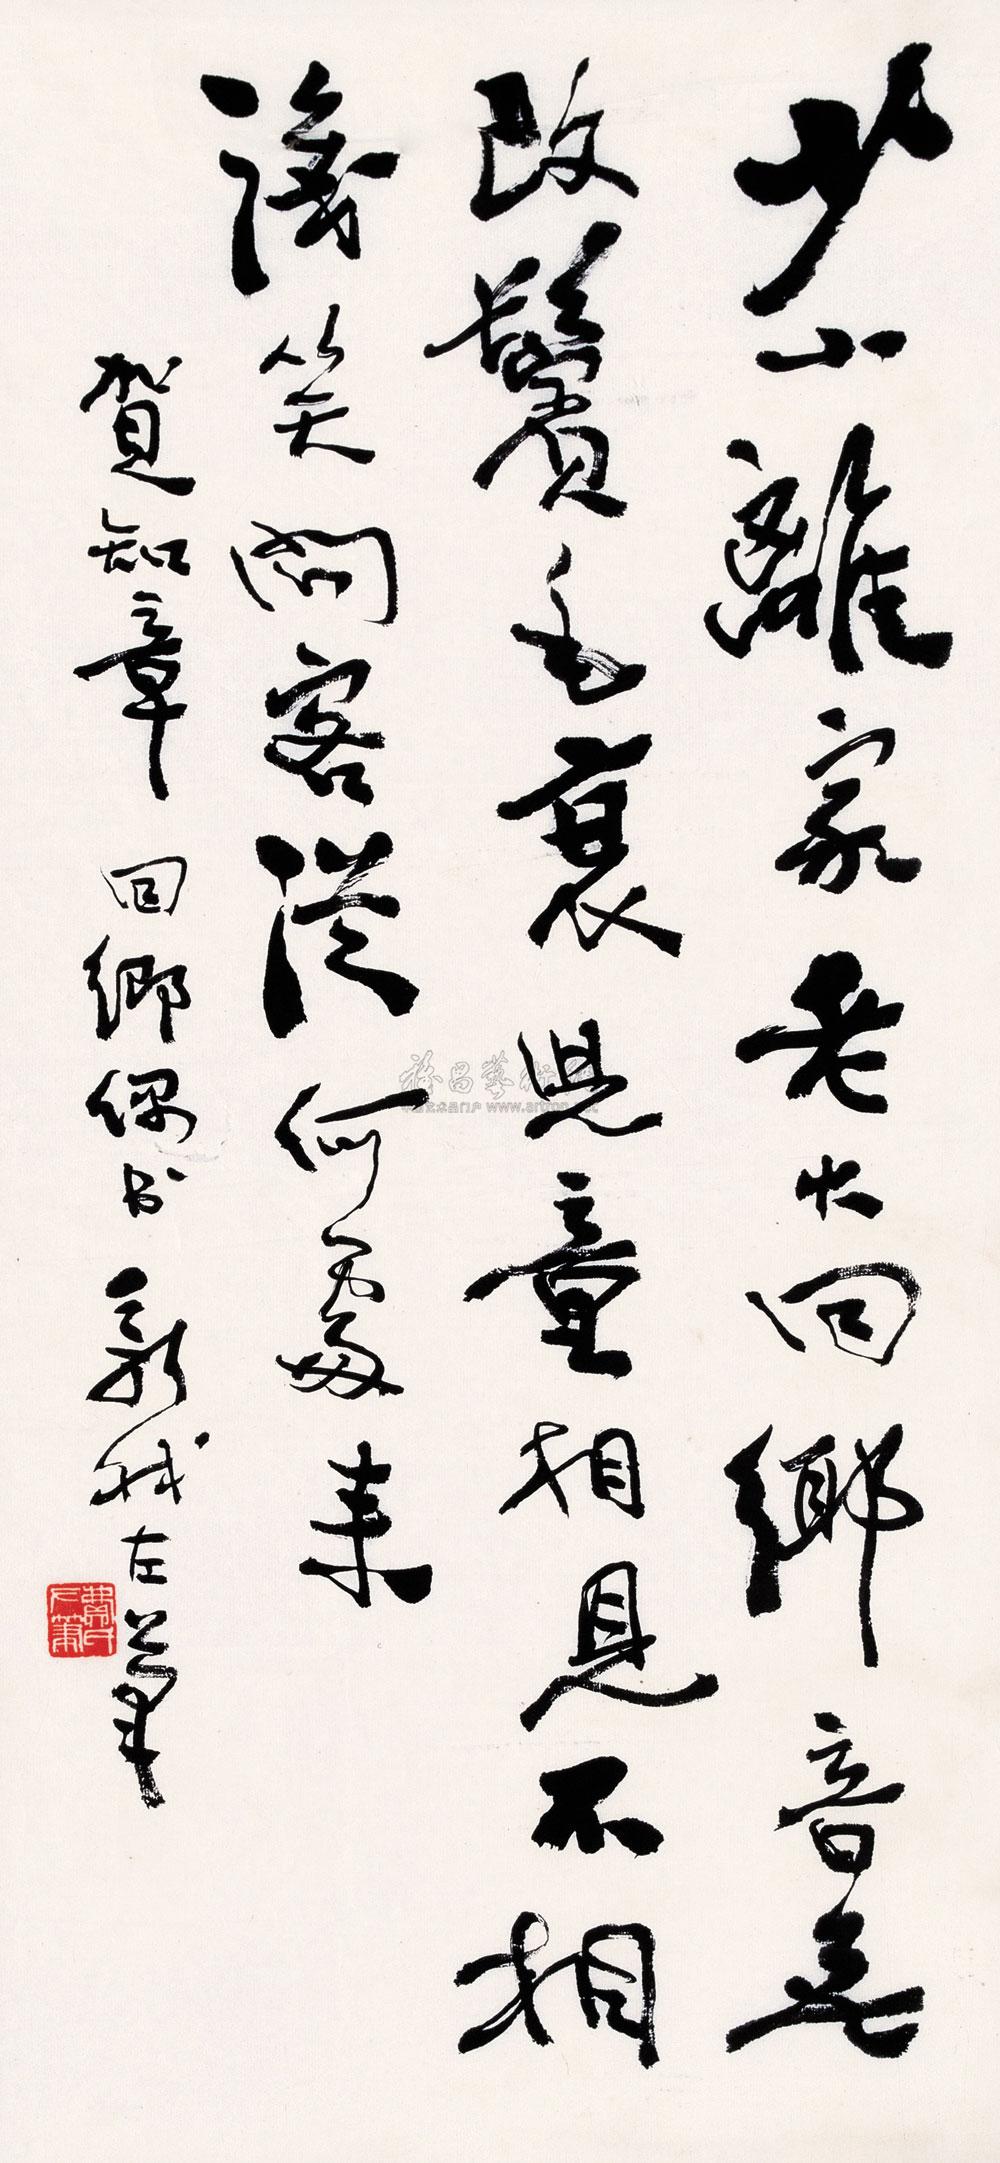 少小離家老大回鄉音無
改鬢毛衰兒童相見不相
識笑問客從何處來
賀知章 回鄉偶書 新我左筆
費氏左筆
昌藝術
品门户 www.artron.net